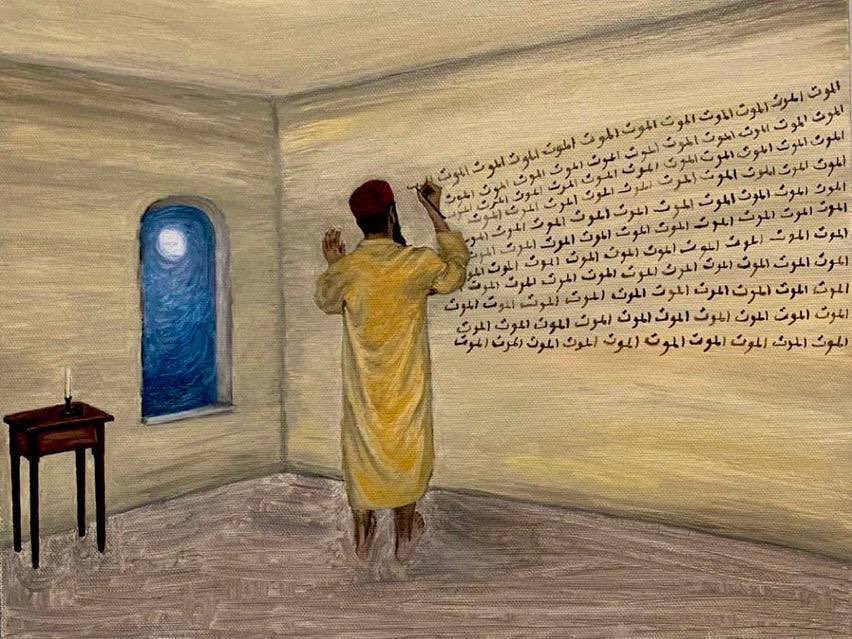 الموت الموت الموت الموت الموت الموت الموت الموت الموت الموت الموت
الموت الموت الموت الموت الموت الموت الموت الموت الموت الموت الموت
الموت الموت الموت الموت الموت الموت الموت الموت الموت الموت الموت
الموت الموت الموت الموت الموت الموت الموت الموت الموت الموت
الموت الموت الموت الموت الموت الموت الموت الموت الموت الموت
الموت الموت الموت الموت الموت الموت الموت الموت الموت الموت
الموت الموت الموت الموت الموت الموت الموت الموت الموت الموت
الموت الموت الموت الموت الموت الموت الموت الموت الموت الموت
الموت الموت الموت الموت الموت الموت الموت الموت الموت الموت
الموت الموت الموت الموت الموت الموت الموت الموت الموت الموت
الموت الموت الموت الموت الموت الموت الموت الموت الموت الموت